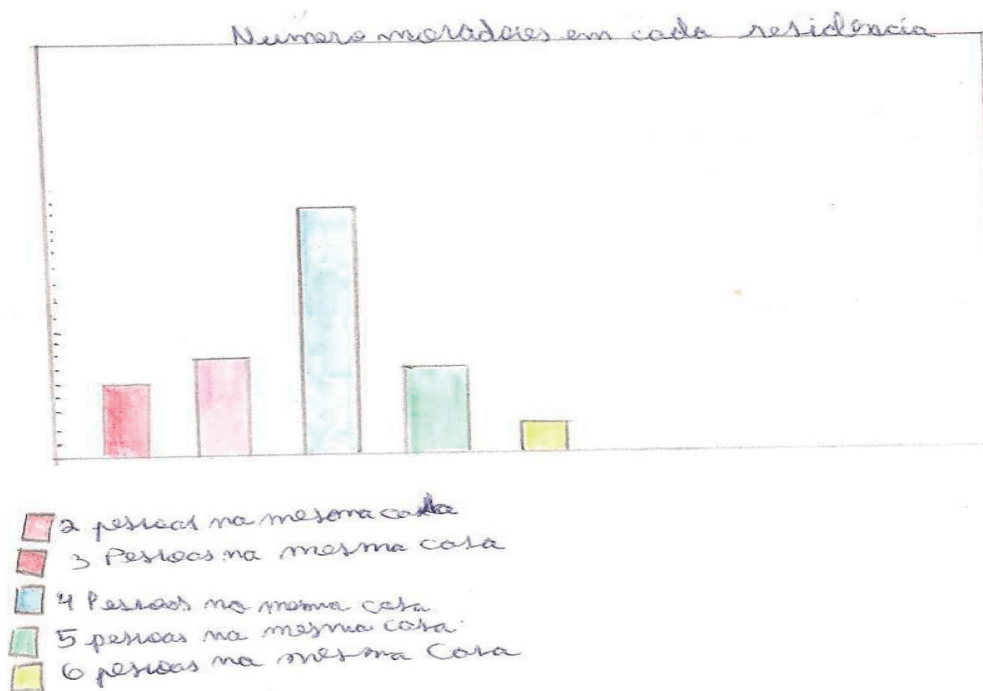 Numero moradores em cada residência
2 pessoas na mesma casa
3 Pessoas na mesma casa
4 Pessoas na mesma casa
5 pessoas na mesma casa.
6 pessoas na mesma Casa